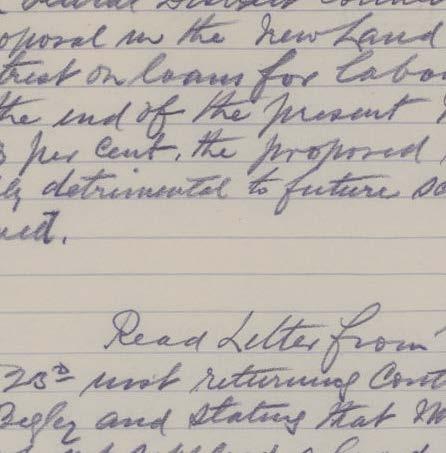 Rural District Council
oposal in the New Land
trest on loans for labo
the end of the present
3 per cent, the proposed
ly detrimental to future sc
ued.
Read Letter from
23rd inst returning Cont
Begley and stating that M